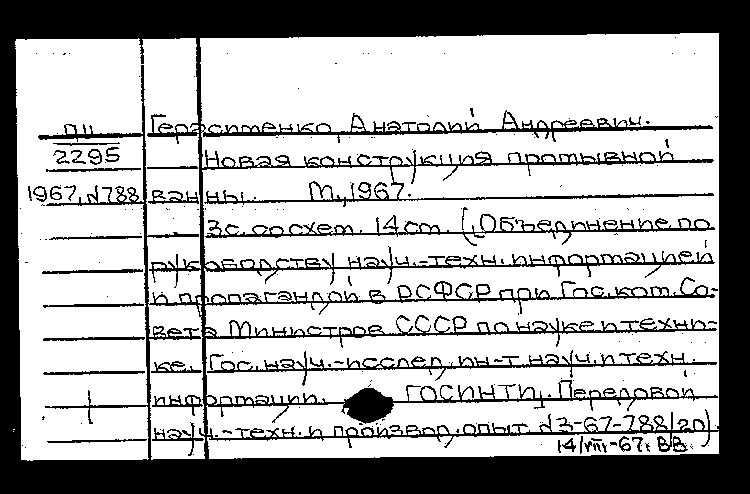 ПИ Герасименко, Анатолий Андреевич.
2295 Новая конструкция промывной
1967, №788 ванны. М., 1967.
3 с. со схем. 14 см. (Объединение по
руководству науч.-техн. информацией
и пропагандой в РСФСР при Гос. ком. Со-
вета Министров СССР по науке и техни-
ке. Гос. науч.-исслед. ин-т науч. и техн.
информации. ГОСИНТИ. Передовой
науч.-техн. и производ. опыт №3-67-788/20).
14/VIII-67г. ВВ.